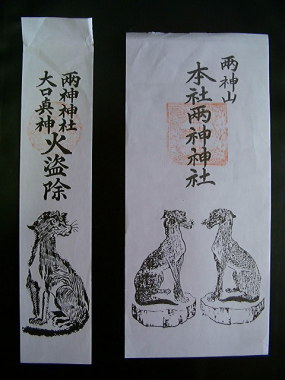 両神神社
大口真神
火盗除
両神山
本社両神神社